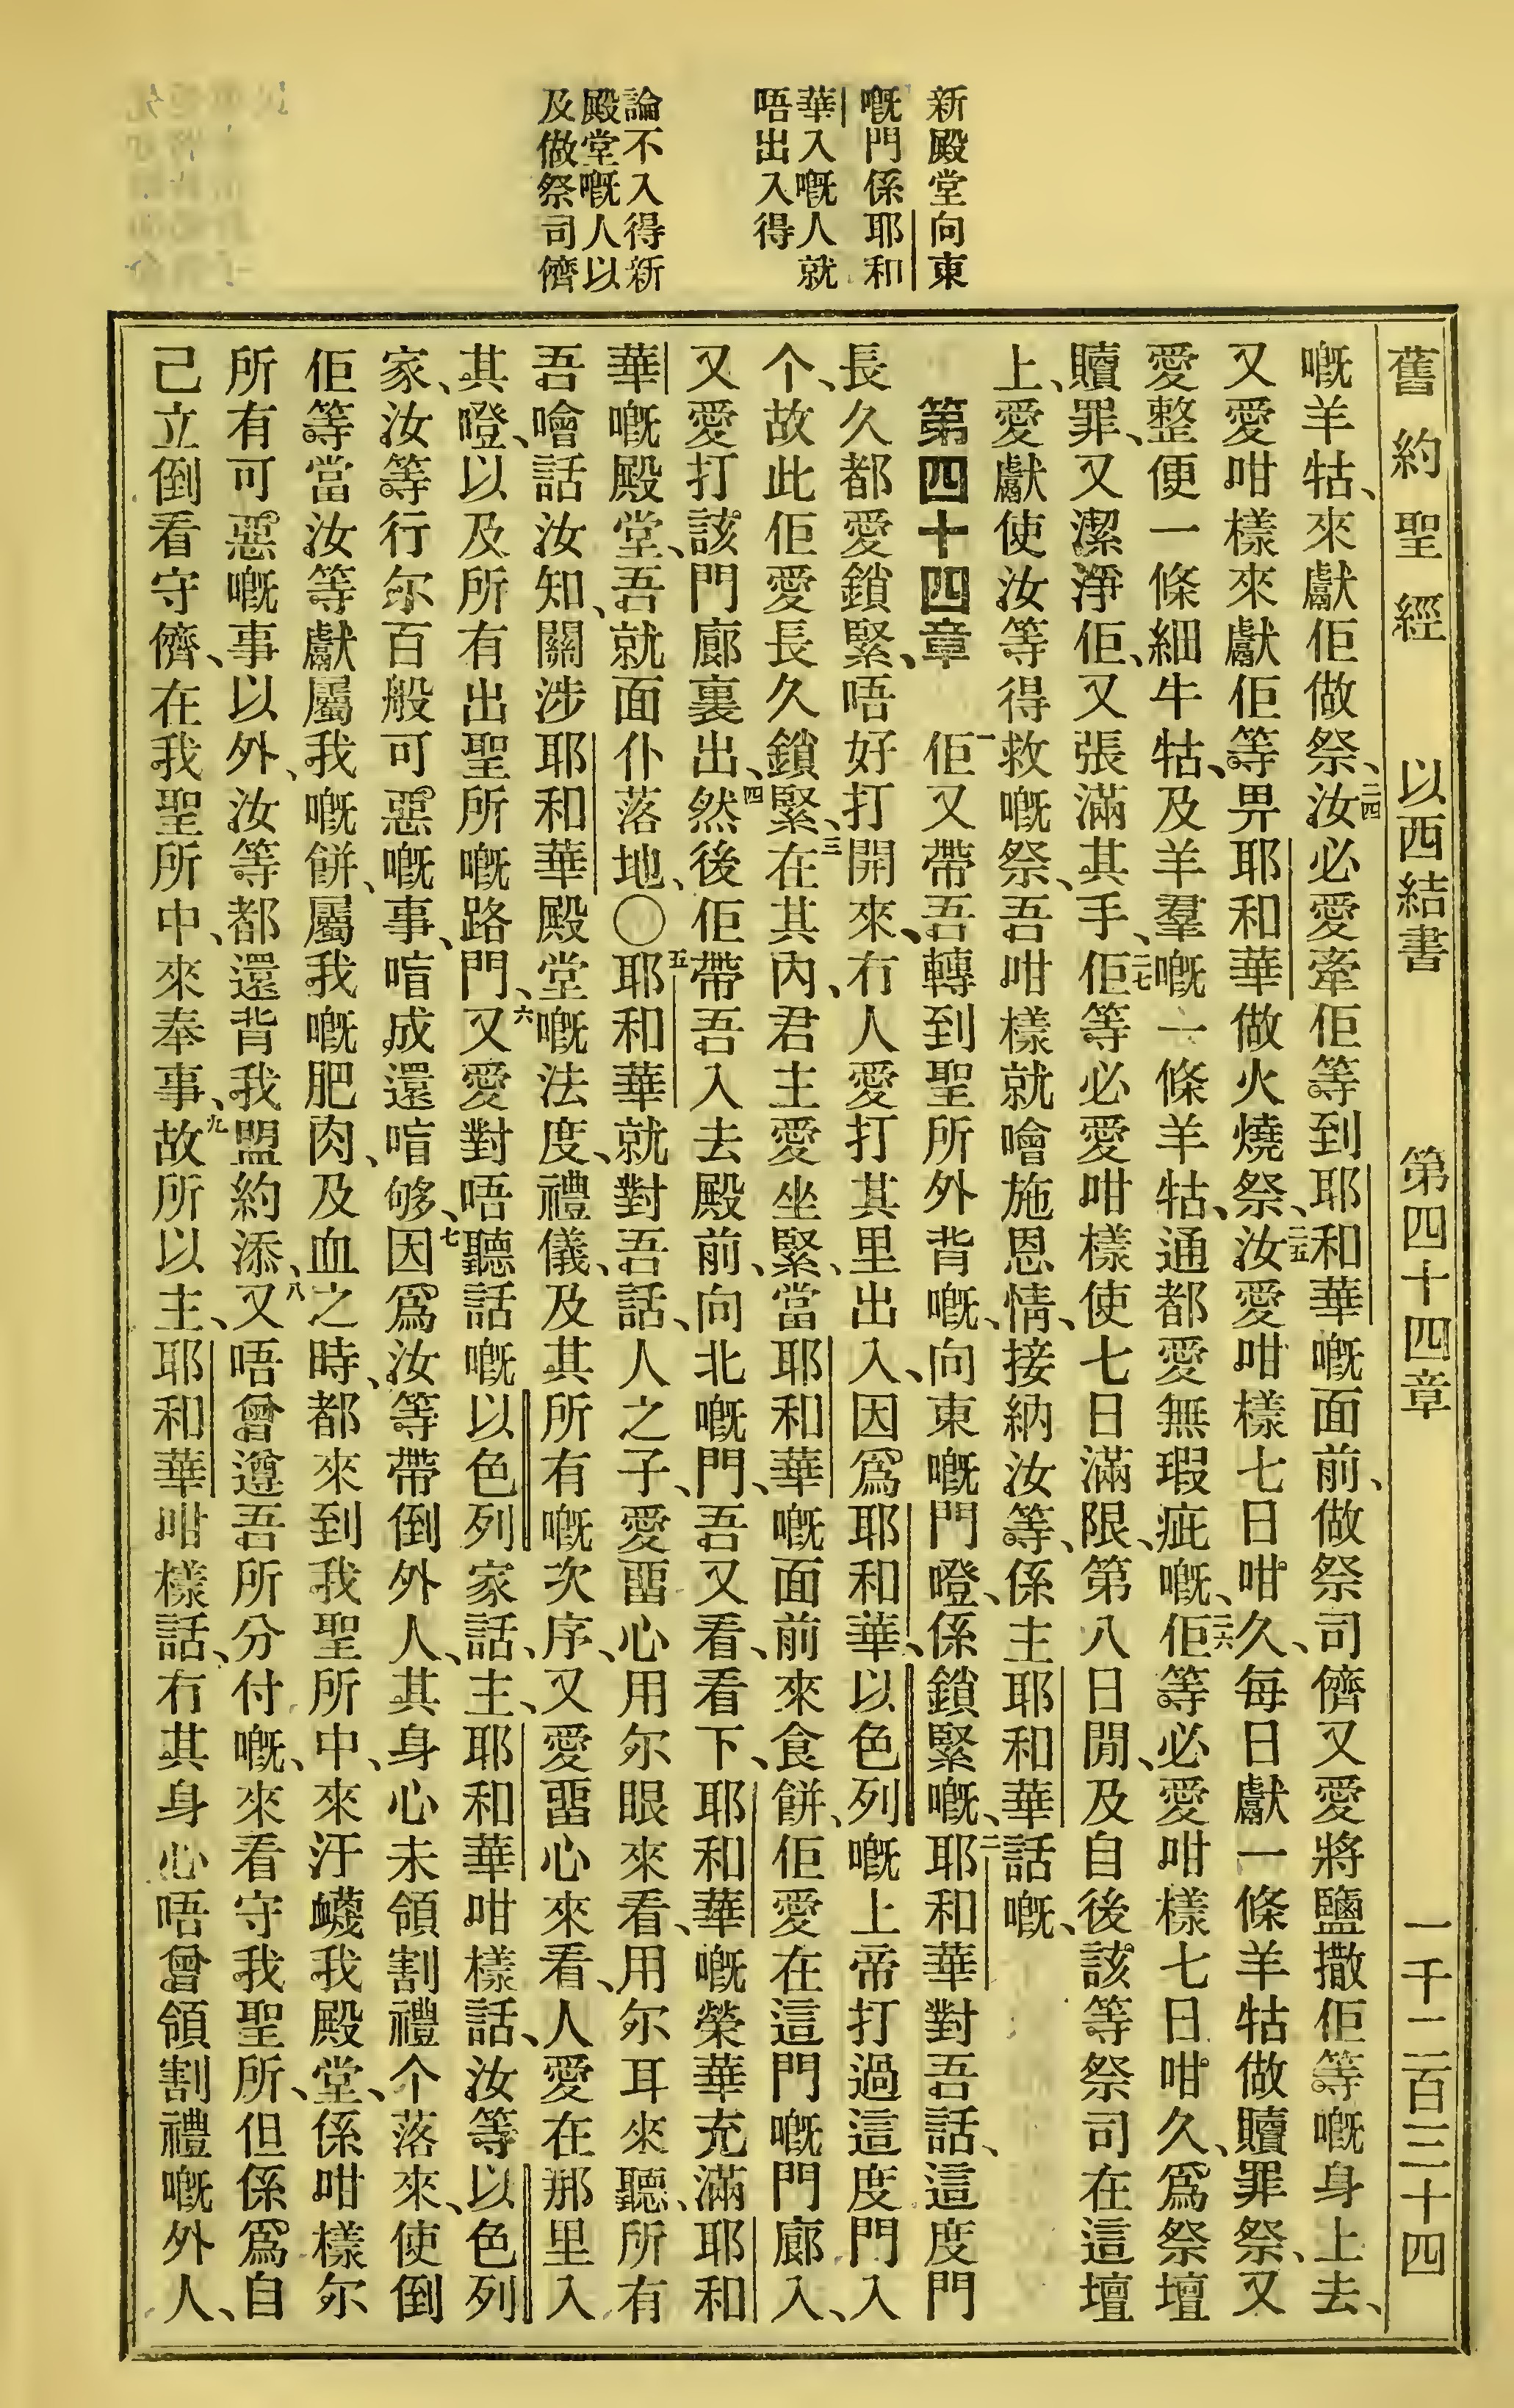 新殿堂向東
嘅門係耶和
華入嘅人就
唔出入得
論不入得新
殿堂嘅人以
及做祭司儕
舊約聖經 以西結書 第四十四章 一千二百三十四
嘅羊牯、來獻佢做祭、二四汝必愛牽佢等到耶和華嘅面前、做祭司儕又愛將鹽撒佢等嘅身上去、
又愛咁樣來獻佢等畀耶和華做火燒祭、二五汝愛咁樣七日咁久、每日獻一條羊牯做贖罪祭、又
愛整便一條細牛牯、及羊羣嘅一條羊牯、通都愛無瑕疵嘅、二六佢等必愛咁樣七日咁久、爲祭壇
贖罪、又潔淨佢、又張滿其手、二七佢等必愛咁樣使七日滿限、第八日閒、及自後該等祭司在這壇
上、愛獻使汝等得救嘅祭、吾咁樣就噲施恩情、接納汝等、係主耶和華話嘅、
第四十四章 一佢又帶吾轉到聖所外背嘅、向東嘅門嶝、係鎖緊嘅、二耶和華對吾話、這度門
長久都愛鎖緊、唔好打開來、冇人愛打其里出入、因爲耶和華、以色列嘅上帝打過這度門入
个、故此佢愛長久鎖緊、三在其內、君主愛坐緊、當耶和華嘅面前來食餅、佢愛在這門嘅門廊入、
又愛打該門廊裏出、四然後佢帶吾入去殿前、向北嘅門、吾又看、看下、耶和華嘅榮華充滿耶和
華嘅殿堂、吾就面仆落地、〇五耶和華就對吾話、人之子、愛畱心用尔眼來看、用尔耳來聽、所有
吾噲話汝知、關涉耶和華殿堂嘅法度、禮儀、及其所有嘅次序、又愛畱心來看、人愛在那里入
其嶝、以及所有出聖所嘅路門、六又愛對唔聽話嘅以色列家話、主、耶和華咁樣話、汝等以色列
家、汝等行尔百般可惡嘅事、喑成還喑够、七因爲汝等帶倒外人、其身心未領割禮个落來、使倒
佢等當汝等獻屬我嘅餅、屬我嘅肥肉、及血之時、都來到我聖所中、來汙衊我殿堂、係咁樣尔
所有可惡嘅事以外、汝等都還背我盟約添、八又唔曾遵吾所分付嘅、來看守我聖所、但係爲自
己立倒看守儕、在我聖所中、來奉事、九故所以主、耶和華咁樣話、冇其身心唔曾領割禮嘅外人、